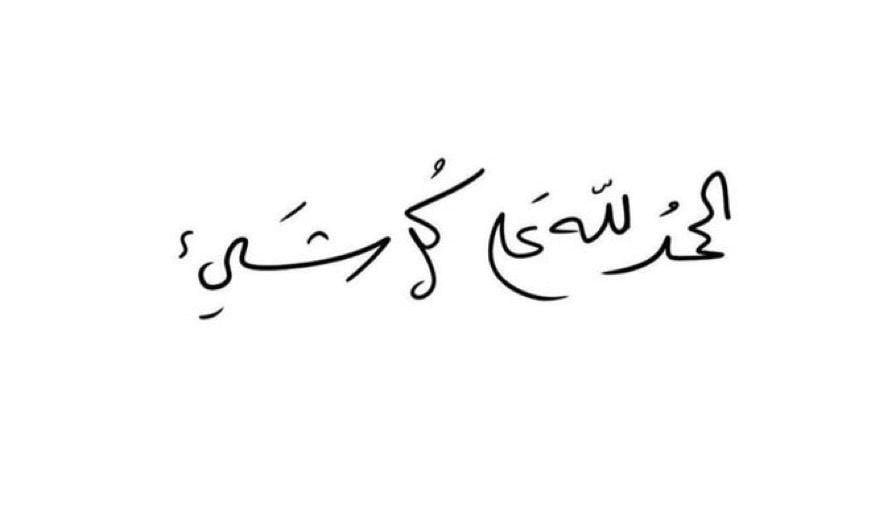 الحمدُ للّه عَلى كُل شَيء